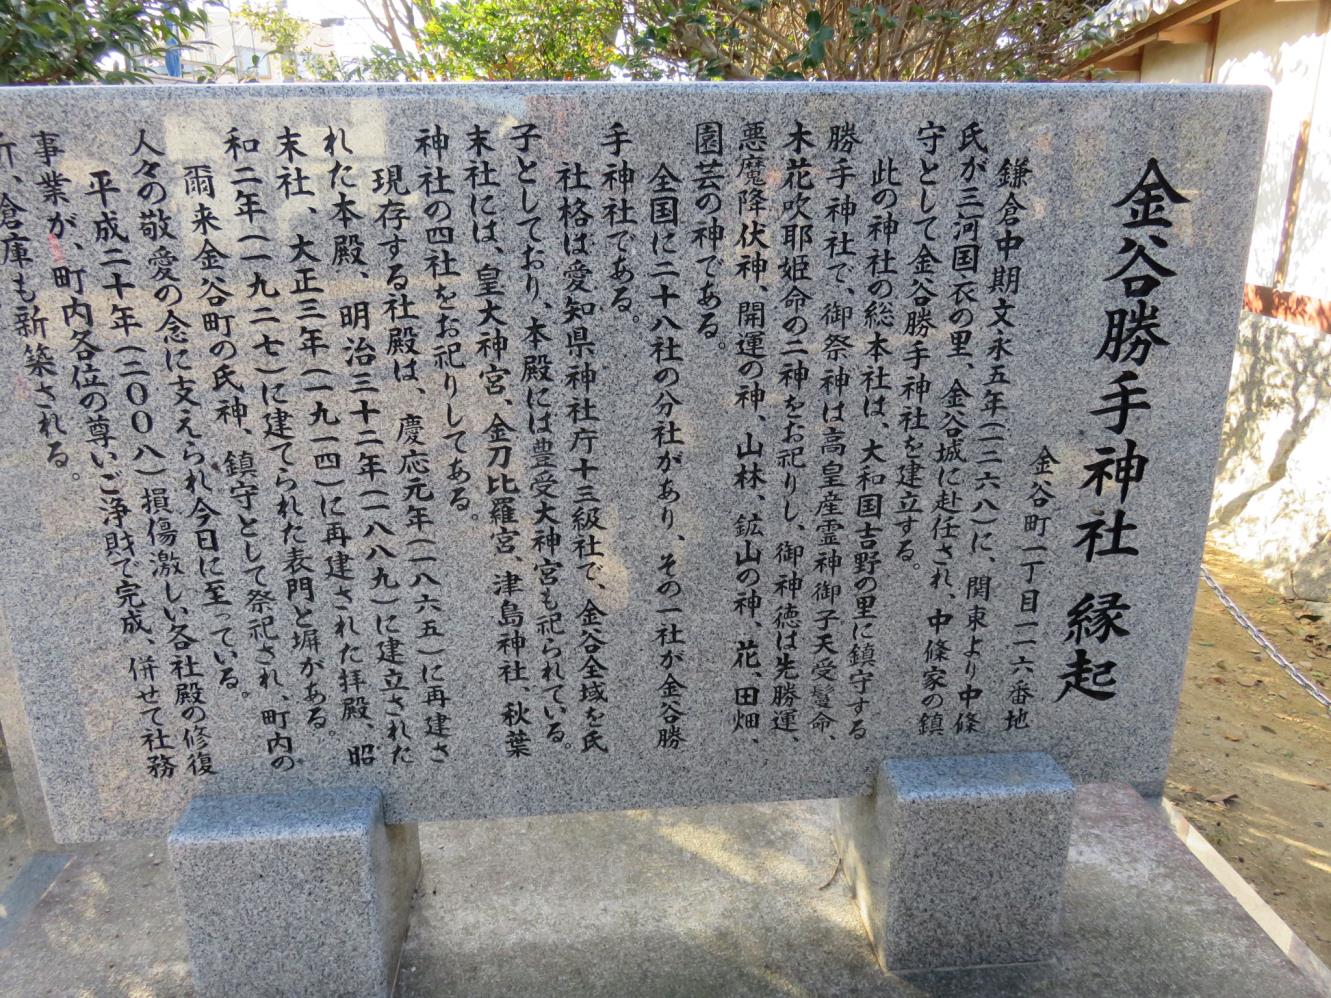 金谷勝手神社 縁起
金谷町一丁目一一六番地
鎌倉中期文永五年(一二六八)に、関東より中條
氏が三河国衣の里、金谷城に赴任され、中條家の鎮
守として金谷勝手神社を建立する。
此の神社の総本社は、大和国吉野の里に鎮守する
勝手神社で、御祭神は高皇産霊神御子天受鬘命、
木花吹耶姫命の二神をお祀りし、御神徳は先勝運、
悪魔降伏神、開運の神、山林、鉱山の神、花、田畑、
園芸の神である。
全国に二十八社の分社があり、その一社が金谷勝
手神社である。
社格は愛知県神社庁十三級社で、金谷全域を氏
子としており、本殿には豊受大神宮も祀られている。
末社には、皇大神宮、金刀比羅宮、津島神社、秋葉
神社の四社をお祀りしてある。
現存する社殿は、慶応元年(一八六五)に再建さ
れた本殿、明治三十二年(一八八九)に建立された
末社、大正三年(一九一四)に再建された拝殿、昭
和二年(一九二七)に建てられた表門と塀がある。
爾来金谷町の氏神、鎮守として祭祀され、町内の
人々の敬愛の念に支えられ今日に至っている。
平成二十年(二００八)損傷激しい各社殿の修復
事業が、町内各位の尊いご浄財で完成、併せて社務
所、倉庫も新築される。